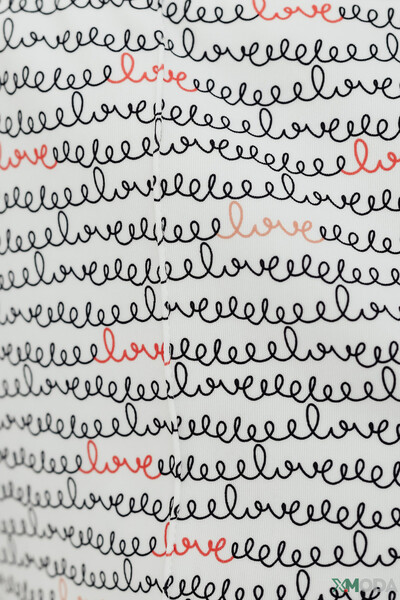 love love
love love
love love
love love
love love lo
love love
love love
love love
love love
love love
love love
love love
love love
love love
love love love
love love
XMODA